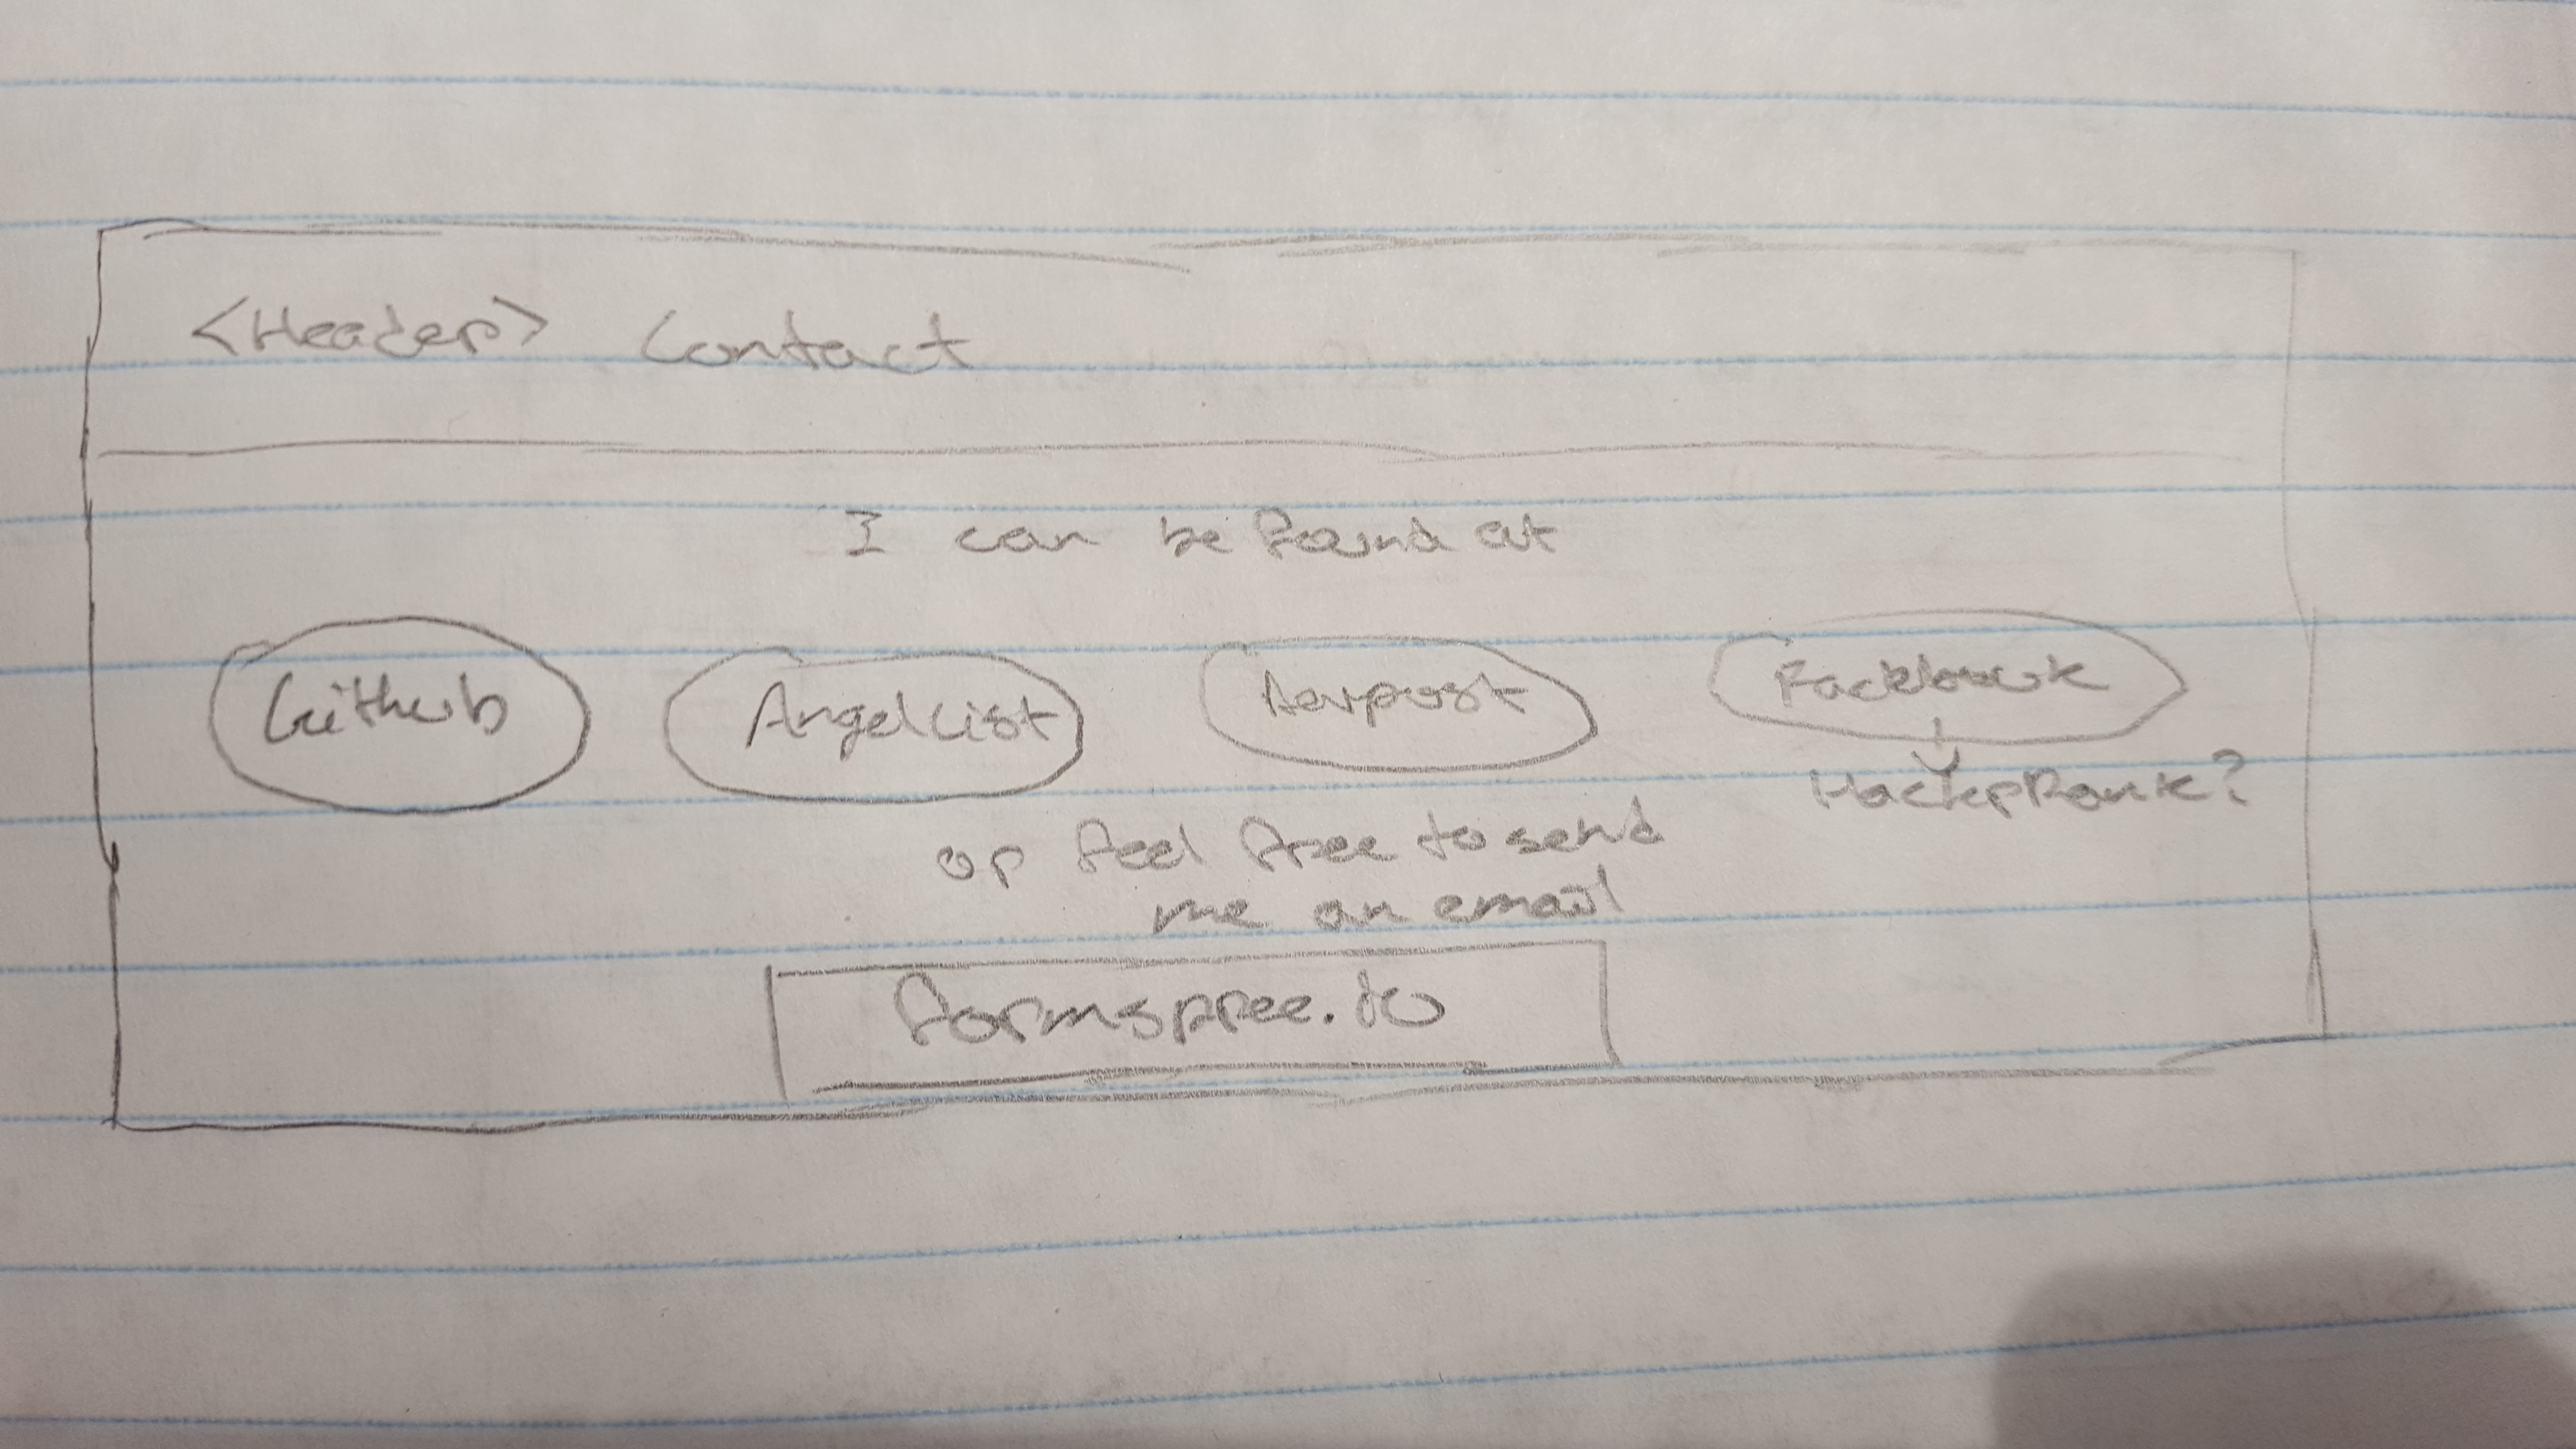 <Header> Contact
I can be found at
Github AngelList Devpost Facebook
HackerRank?
or feel free to send
me an email
formspree.io